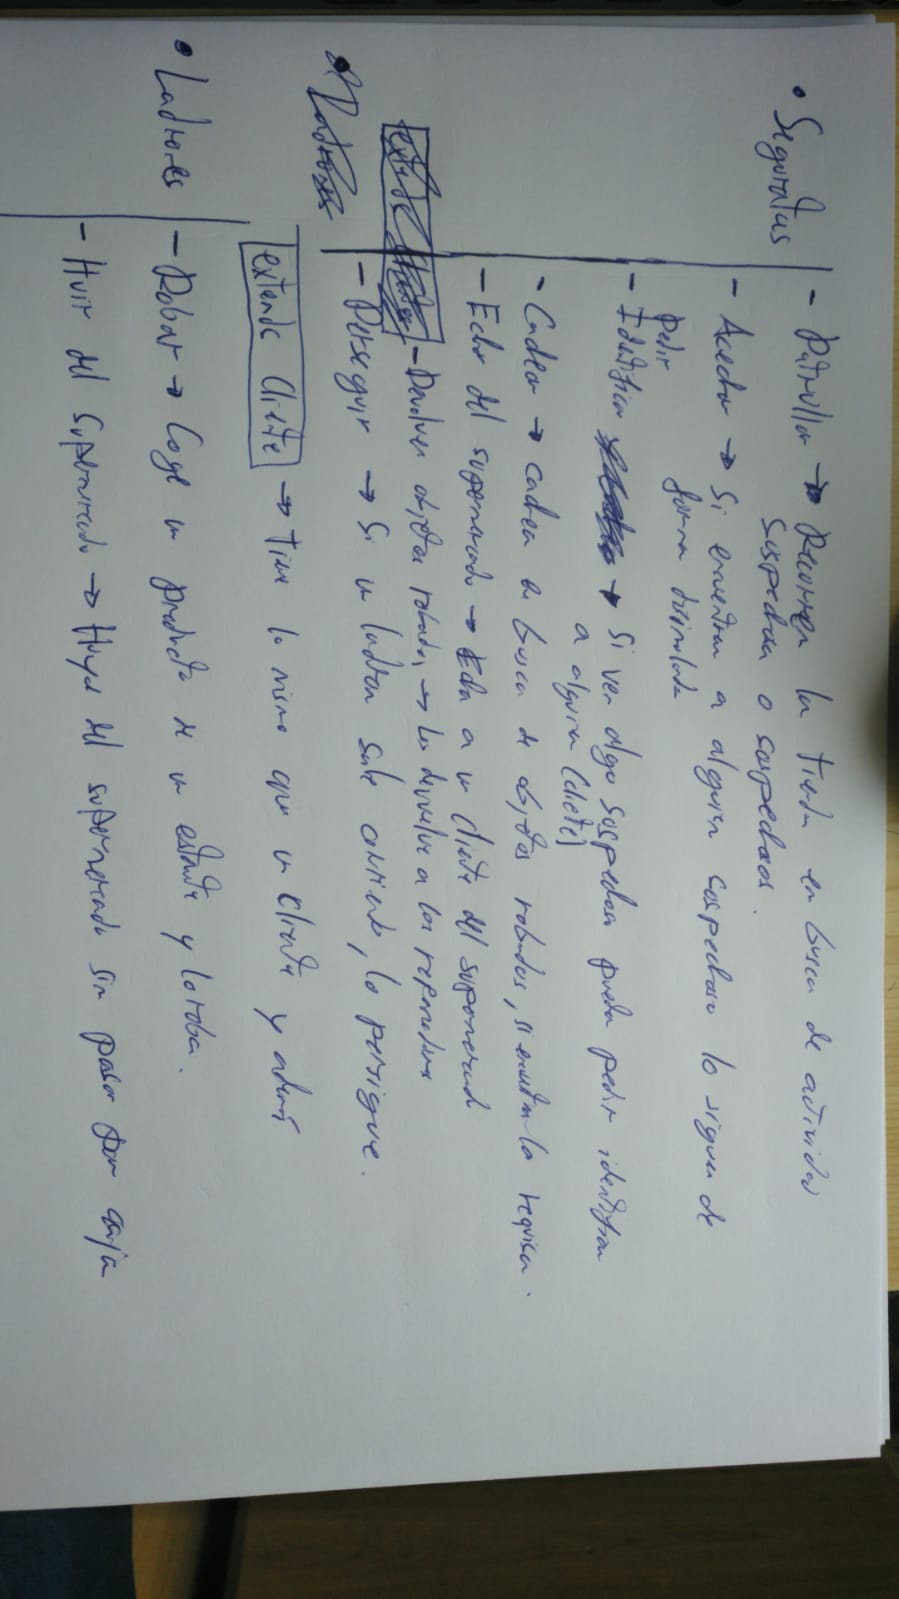 • Seguratas
- Patrullar → Recorren la tienda en busca de actividad
sospechosa o sospechosos.
- Acechar → Si encuentran a alguien sospechoso lo siguen de
forma disimulada
- Pedir
Identificar → Si ven algo sospechoso pueden pedir identificar
a alguien (cliente)
- Cachear → cachea en busca de objetos robados, si encuentra lo requisa.
- Echar del supermercado → Echa a un cliente del supermercado
- Devolver objetos robados → Los devuelve a los reponedores
- Perseguir → Si un ladron sale corriendo, lo persigue.
• Ladrones
extends Cliente → Tiene lo mismo que un cliente y además
• Ladrones
- Robar → Coge un producto de un estante y lo roba.
- Huir del supermercado → Huye del supermercado sin pasar por caja